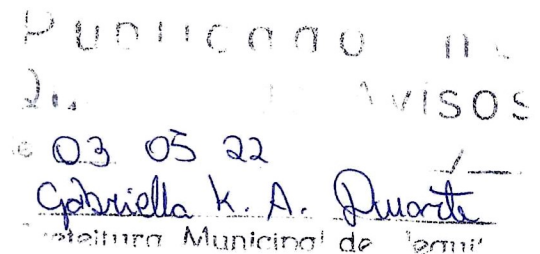 Publicado n
Avisos
03 05 22
Gabriella K. A. Duarte
Prefeitura Municipal de